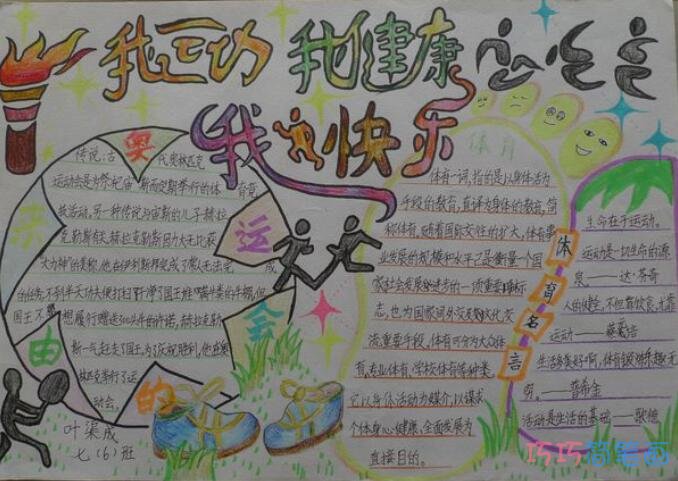 我运动 我健康
我快乐
奥运会的由来
传说,古代奥林匹克
运动会是为祭祀宙斯而定期举行的体育竞
技活动,另一种传说与宙斯的儿子赫拉
克勒斯有关,赫拉克勒斯因力大无比获
"大力神"的美称,他在伊利斯邦完成了常人无法完成
的任务,不到半天功夫便打扫干净了国王堆
国王不想履行赠送300头牛的许诺,赫拉克勒
斯一气赶走了国王,为了庆祝胜利,他在奥
林匹克举行了运
动会.
叶渠成
七(6)班
体育
体育一词,指的是以身体活为
手段的教育,直译为身体的教育,简
称体育,随着国际交往的扩大,体育事
业发展的规模和水平已是衡量一个国
家社会发展的进步的一项重要标
志,也为国家间外交及文化交
流重要手段,体育可分为大众体
育,专业体育,学校体育等种类.
它以身体活动为媒介,以谋求
个体身心健康、全面发展为
直接目的。
体育名言
生命在于运动。
运动是一切生命的源
泉。——达·芬奇
人的健全,不但靠饮食,尤靠
运动——蔡元培
生活多美好啊,体育锻炼乐趣无
穷。——普希金
活动是生活的基础——歌德
巧巧简笔画